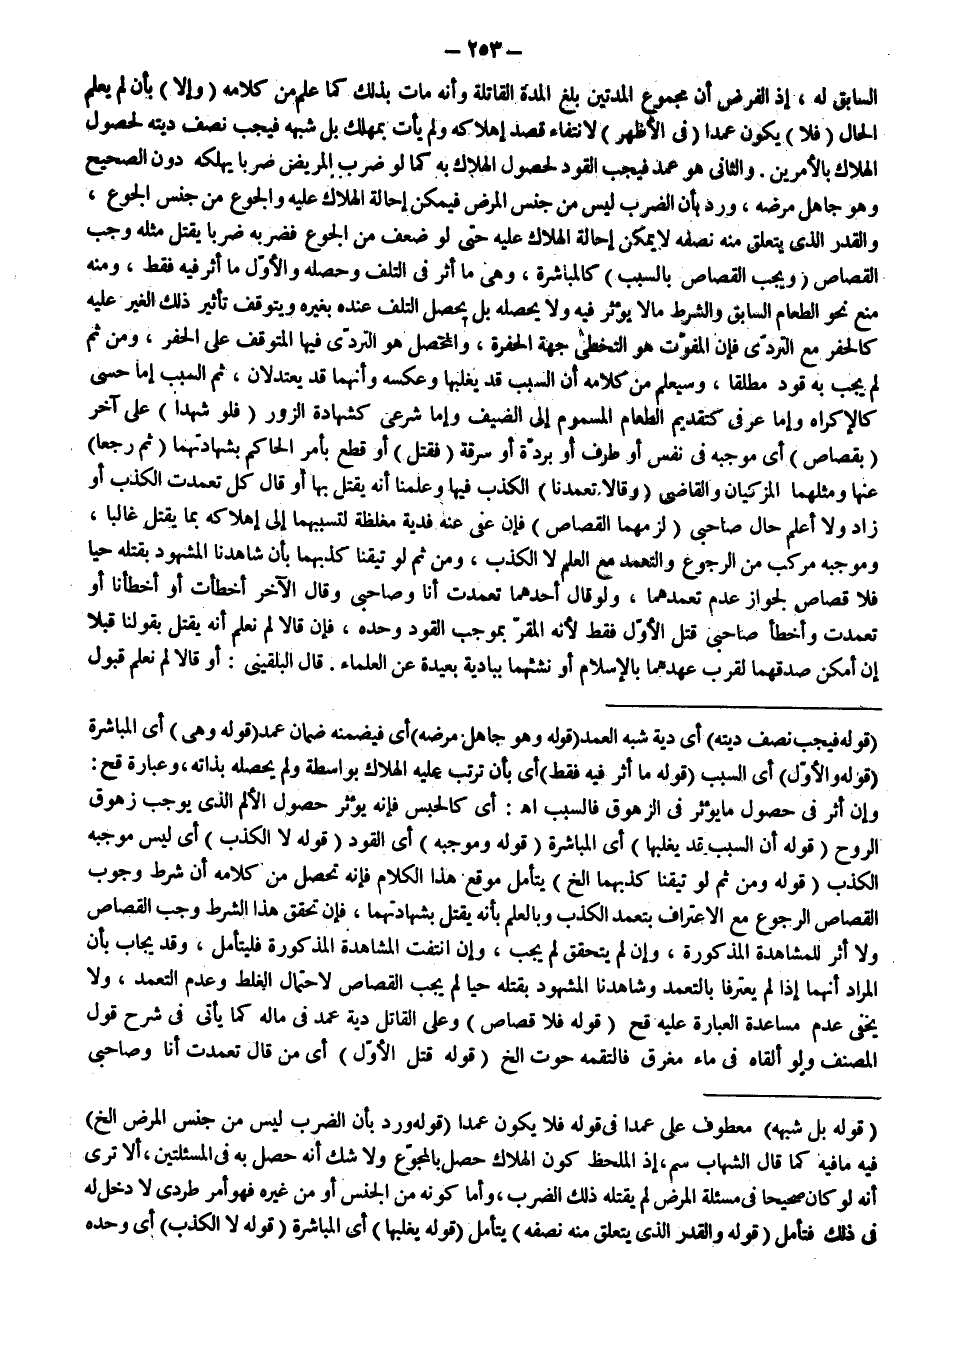 – ٢٥٣ –
السابق له ، إذ الفرض أن مجموع المدتين بلغ المدة القاتلة وأنه مات بذلك كما علم من كلامه ( وإلا ) بأن لم يعلم
الحال ( فلا ) يكون عمدا ( فى الأظهر ) لانتفاء قصد إهلاكه ولم يأت بمهلك بل شبهه فيجب نصف ديته لحصول
الهلاك بالأمرين . والثانى هو عمد فيجب القود لحصول الهلاك به كما لو ضرب المريض ضربا يهلكه دون الصحيح
وهو جاهل مرضه ، ورد بأن الضرب ليس من جنس المرض فيمكن إحالة الهلاك عليه والجوع من جنس الجوع ،
والقدر الذى يتعلق منه نصفه لايمكن إحالة الهلاك عليه حتى لو ضعف من الجوع فضربه ضربا يقتل مثله وجب
القصاص ( ويجب القصاص بالسبب ) كالمباشرة ، وهى ما أثر فى التلف وحصله والأوّل ما أثر فيه فقط ، ومنه
منع نحو الطعام السابق والشرط مالا يؤثر فيه ولا يحصله بل يحصل التلف عنده بغيره ويتوقف تأثير ذلك الغير عليه
كالحفر مع التردّى فإن المفوّت هو التخطى جهة الحفرة ، والمحصل هو التردّى فيها المتوقف على الحفر ، ومن ثم
لم يجب به قود مطلقا ، وسيعلم من كلامه أن السبب قد يغلبها وعكسه وأنهما قد يعتدلان ، ثم السبب إما حسى
كالإكراه وإما عرفى كتقديم الطعام المسموم إلى الضيف وإما شرعى كشهادة الزور ( فلو شهدا ) على آخر
( بقصاص ) أى موجبه فى نفس أو طرف أو بردّة أو سرقة ( فقتل ) أو قطع بأمر الحاكم بشهادتهما ( ثم رجعا)
عنها ومثلهما المزكيان والقاضى ( وقالا تعمدنا ) الكذب فيها وعلمنا أنه يقتل بها أو قال كل تعمدت الكذب أو
زاد ولا أعلم حال صاحبى ( لزمهما القصاص ) فإن عفى عنه فدية مغلظة لتسببهما إلى إهلاكه بما يقتل غالبا ،
وموجبه مركب من الرجوع والتعمد مع العلم لا الكذب ، ومن ثم لو تيقنا كذبهما بأن شاهدنا المشهود بقتله حيا
فلا قصاص لجواز عدم تعمدهما ، ولوقال أحدهما تعمدت أنا وصاحبى وقال الآخر أخطأت أو أخطأنا أو
تعمدت وأخطأ صاحبى قتل الأوّل فقط لأنه المقرّ بموجب القود وحده ، فإن قالا لم نعلم أنه يقتل بقولنا قبلا
إن أمكن صدقهما لقرب عهدهما بالإسلام أو نشئهما ببادية بعيدة عن العلماء . قال البلقينى : أو قالا لم نعلم قبول
(قوله فيجب نصف ديته) أى دية شبه العمد(قوله وهو جاهل مرضه)أى فيضمنه ضمان عمد(قوله وهى ) أى المباشرة
(قوله والأوّل) أى السبب (قوله ما أثر فيه فقط)أى بأن ترتب عليه الهلاك بواسطة ولم يحصله بذاته،وعبارة قح:
وإن أثر فى حصول مايؤثر فى الزهوق فالسبب اه : أى كالحبس فإنه يؤثر حصول الألم الذى يوجب زهوق
الروح ( قوله أن السبب قد يغلبها ) أى المباشرة ( قوله وموجبه ) أى القود ( قوله لا الكذب ) أى ليس موجبه
الكذب ( قوله ومن ثم لو تيقنا كذبهما الخ ) يتأمل موقع هذا الكلام فإنه تحصل من كلامه أن شرط وجوب
القصاص الرجوع مع الاعتراف بتعمد الكذب وبالعلم بأنه يقتل بشهادتهما ، فإن تحقق هذا الشرط وجب القصاص
ولا أثر للمشاهدة المذكورة ، وإن لم يتحقق لم يجب ، وإن انتفت المشاهدة المذكورة فليتأمل ، وقد يجاب بأن
المراد أنهما إذا لم يعترفا بالتعمد وشاهدنا المشهود بقتله حيا لم يجب القصاص لاحتمال الغلط وعدم التعمد ، ولا
يخفى عدم مساعدة العبارة عليه قح ( قوله فلا قصاص ) وعلى القاتل دية عمد فى ماله كما يأتى فى شرح قول
المصنف ولو ألقاه فى ماء مغرق فالتقمه حوت الخ ( قوله قتل الأوّل ) أى من قال تعمدت أنا وصاحبى
( قوله بل شبهه) معطوف على عمدا فى قوله فلا يكون عمدا (قوله ورد بأن الضرب ليس من جنس المرض الخ)
فيه مافيه كما قال الشهاب سم،إذ الملحظ كون الهلاك حصل بالمجوّع ولا شك أنه حصل به فى المسئلتين ، ألا ترى
أنه لو كان صحيحا فى مسئلة المرض لم يقتله ذلك الضرب،وأما كونه من الجنس أو من غيره فهو أمر طردى لا دخل له
فى ذلك فتأمل ( قوله والقدر الذى يتعلق منه نصفه ) يتأمل (قوله يغلبها ) أى المباشرة ( قوله لا الكذب) أى وحده